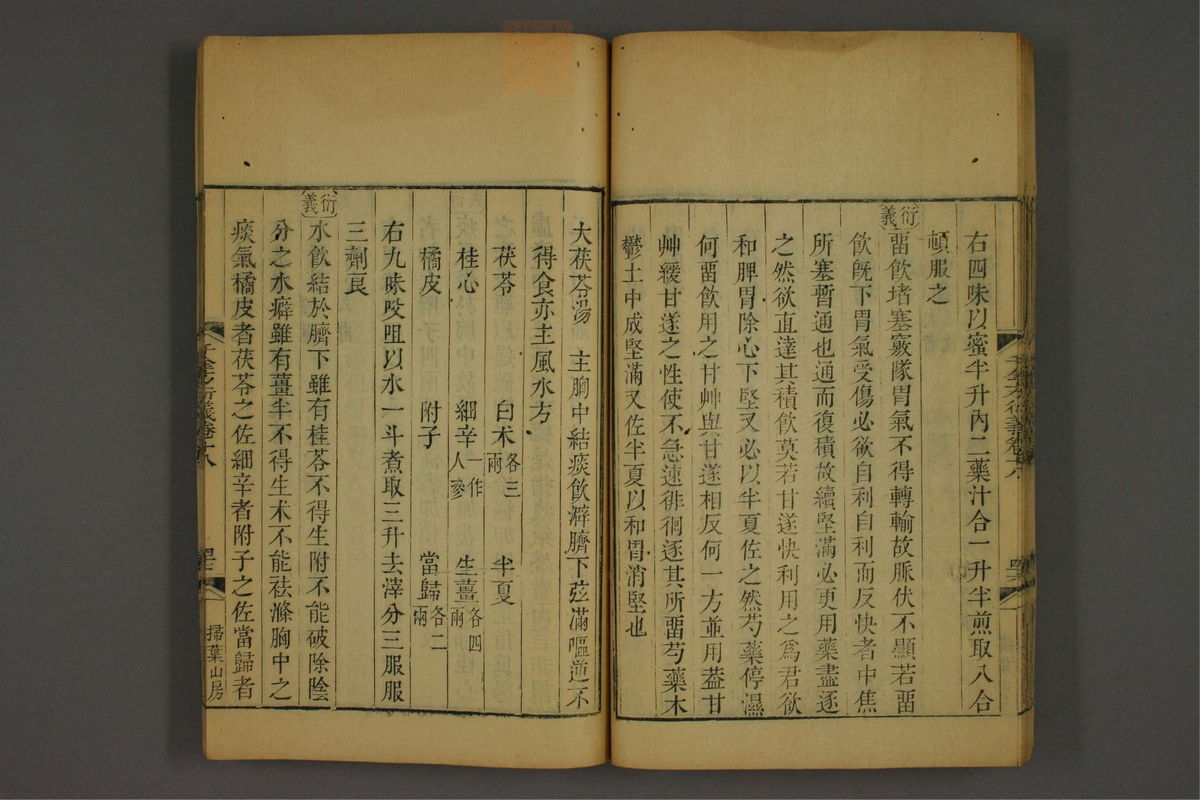 右四味以蜜半升內二藥汁合一升半煎取八合
頓服之
衍義 畱飲堵塞竅隧胃氣不得轉輸故脈伏不顯若畱
飲旣下胃氣受傷必欲自利自利而反快者中焦
所塞暫通也通而復積故續堅滿必更用藥盡逐
之然欲直達其積飲莫若甘遂快利用之爲君欲
和脾胃除心下堅又必以半夏佐之然芍藥停濕
何畱飲用之甘艸與甘遂相反何一方並用葢甘
艸緩甘遂之性使不急速徘徊逐其所畱芍藥木
鬱土中成堅滿又佐半夏以和胃消堅也
大茯苓湯 主胸中結痰飲澼臍下弦滿嘔逆不
得食亦主風水方
茯苓 白术各三兩 半夏
桂心 細辛一作人參 生薑各四兩
橘皮 附子 當歸各二兩
右九味㕮咀以水一斗煮取三升去滓分三服服
三劑良
衍義 水飲結於臍下雖有桂苓不得生附不能破除陰
分之水癖雖有薑半不得生术不能祛滌胸中之
痰氣橘皮者茯苓之佐細辛者附子之佐當歸者
掃葉山房